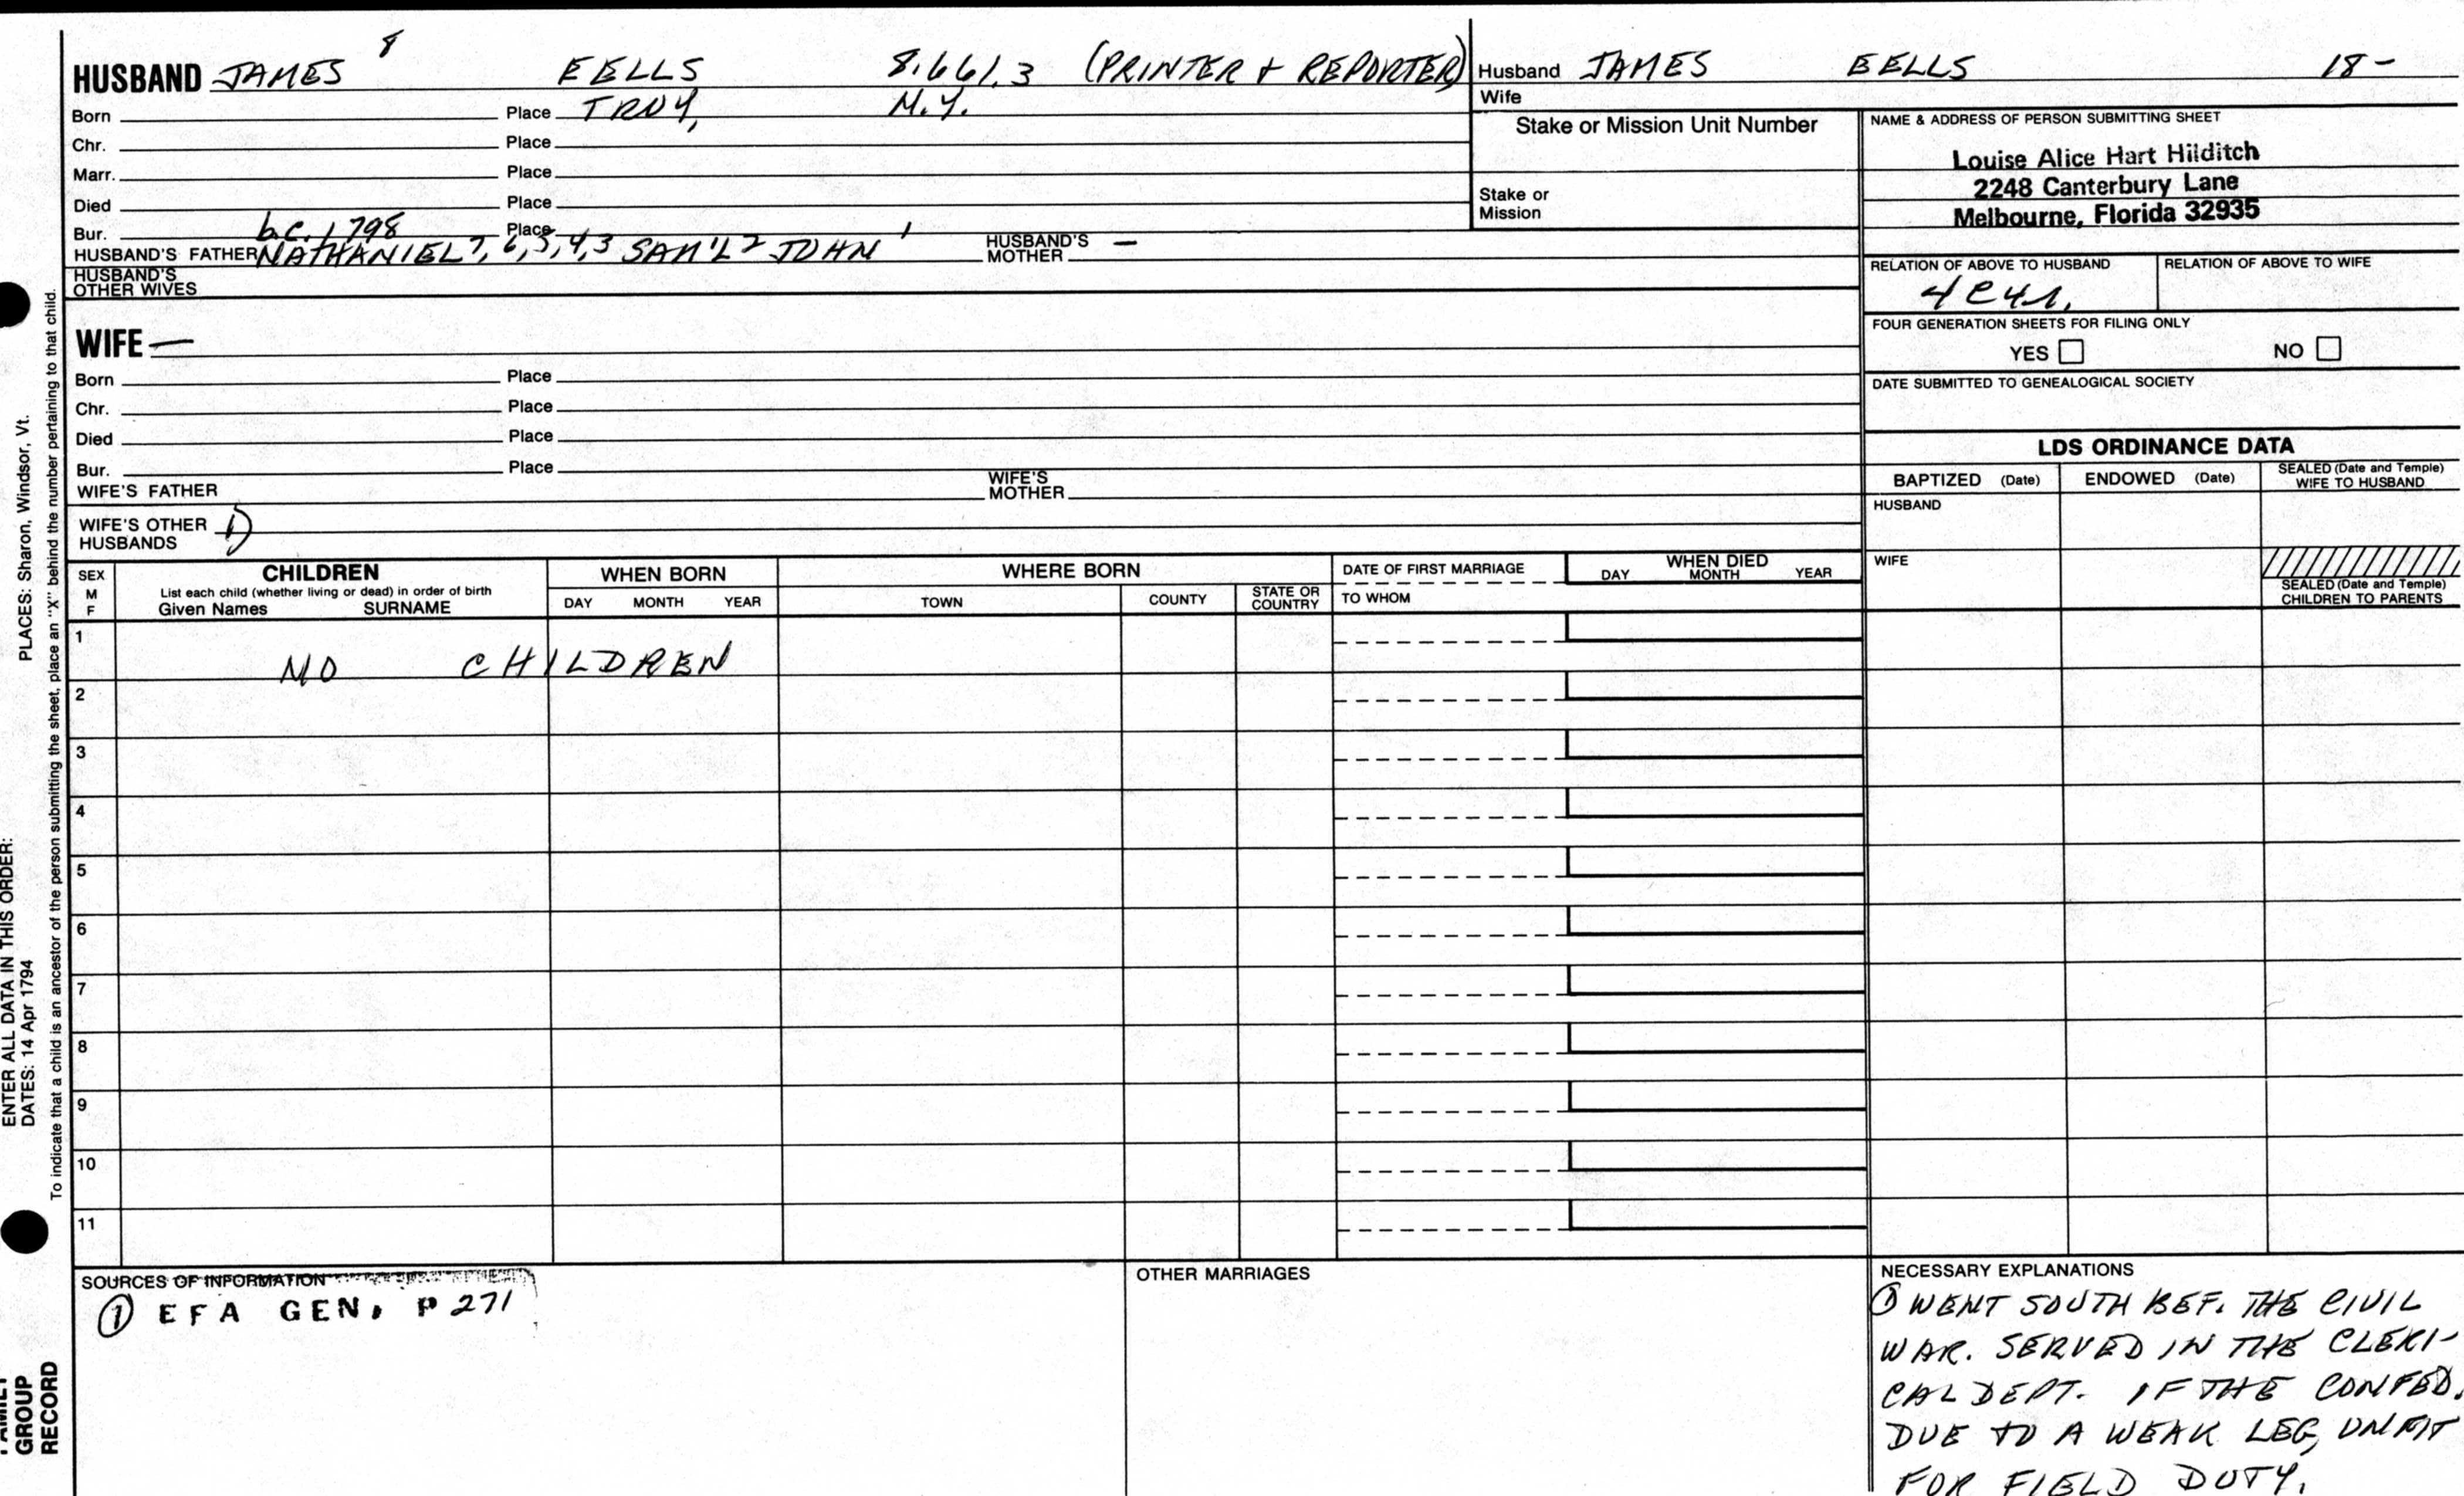 HUSBAND JAMES 8 EELLS 8.661.3 (PRINTER + REPORTER)
Born Place TROY, N.Y.
Chr. Place
Marr. Place
Died Place
Bur. b.c. 1798 Place
HUSBAND'S FATHER NATHANIEL 7, 6, 5, 4, 3 SAM'L 2 JOHN 1 HUSBAND'S MOTHER —
HUSBAND'S OTHER WIVES
WIFE —
Born Place
Chr. Place
Died Place
Bur. Place
WIFE'S FATHER WIFE'S MOTHER
WIFE'S OTHER HUSBANDS 1)
Husband JAMES EELLS 18-
Wife
Stake or Mission Unit Number
Stake or
Mission
NAME & ADDRESS OF PERSON SUBMITTING SHEET
Louise Alice Hart Hilditch
2248 Canterbury Lane
Melbourne, Florida 32935
RELATION OF ABOVE TO HUSBAND RELATION OF ABOVE TO WIFE
4C4R.
FOUR GENERATION SHEETS FOR FILING ONLY
YES NO
DATE SUBMITTED TO GENEALOGICAL SOCIETY
LDS ORDINANCE DATA
BAPTIZED (Date) ENDOWED (Date) SEALED (Date and Temple) WIFE TO HUSBAND
HUSBAND
WIFE
SEALED (Date and Temple)
CHILDREN TO PARENTS
SEX
M
F
CHILDREN
List each child (whether living or dead) in order of birth
Given Names SURNAME
WHEN BORN
DAY MONTH YEAR
WHERE BORN
TOWN COUNTY STATE OR COUNTRY
DATE OF FIRST MARRIAGE
TO WHOM
WHEN DIED
DAY MONTH YEAR
1
NO CHILDREN
2
3
4
5
6
7
8
9
10
11
SOURCES OF INFORMATION
① EFA GEN, P 271
OTHER MARRIAGES
NECESSARY EXPLANATIONS
① WENT SOUTH BEF. THE CIVIL
WAR. SERVED IN THE CLERI-
CAL DEPT. IF THE CONFED.
DUE TO A WEAK LEG, UNFIT
FOR FIELD DUTY.
PLACES: Sharon, Windsor, Vt.
ENTER ALL DATA IN THIS ORDER:
DATES: 14 Apr 1794
To indicate that a child is an ancestor of the person submitting the sheet, place an "X" behind the number pertaining to that child.
FAMILY
GROUP
RECORD